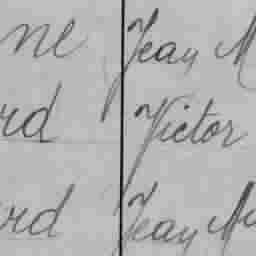 ne Jean M
rd Victor
rd Jean Ma